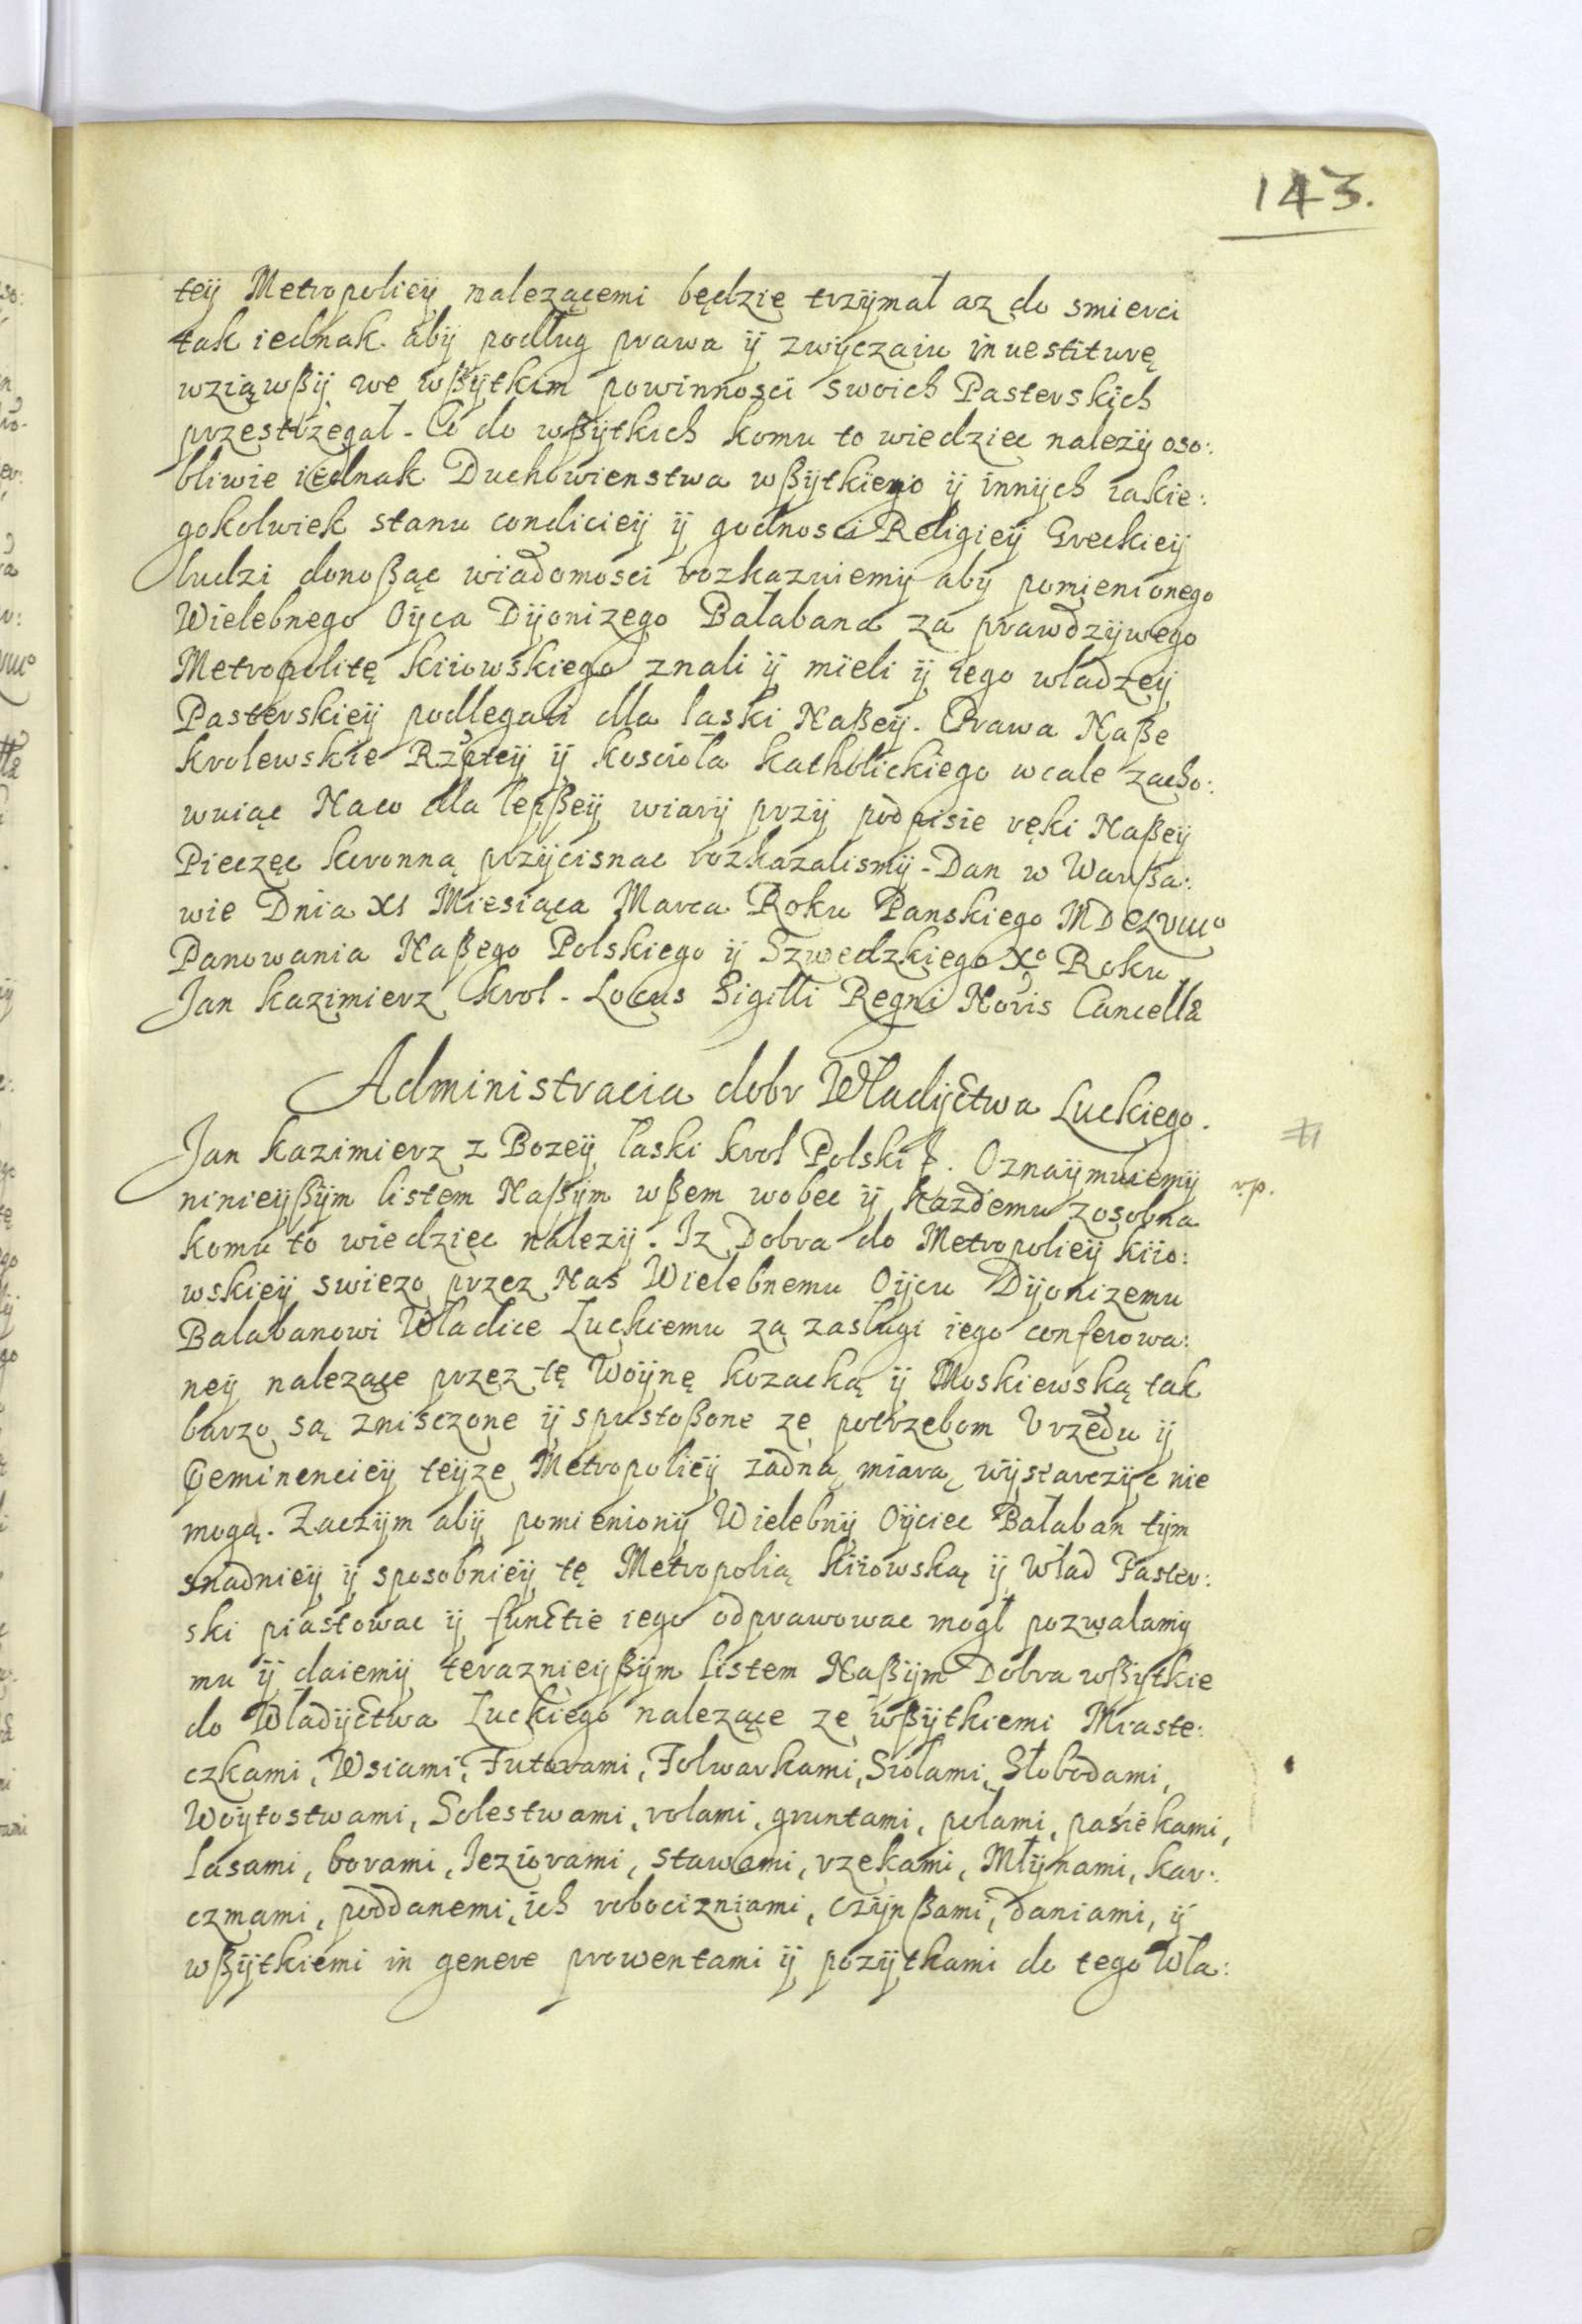 143.
teÿ Metropolieÿ nalezącemi będzie trzÿmał az do smierci
tak iednak abÿ podług prawa ÿ zwÿczaiu inuestiturę
wziąwßÿ we wßÿtkim powinnosci swoich Pasterskich
przestrzegał. Co do wßÿtkich komu to wiedziec nalezÿ oso:
bliwie iednak Duchowienstwa wßÿtkiego ÿ innÿch iakie:
gokolwiek stanu condicieÿ ÿ godnosci Religieÿ Greckieÿ
ludzi donoßąc wiadomosci rozkazuiemÿ abÿ pomienionego
Wielebnego Oÿca Dÿonizego Bałabana za prawdzÿwego
Metropolitę kiiowskiego znali ÿ mieli ÿ iego władzeÿ
Pasterskieÿ podlegali dla łaski Naßeÿ. Prawa Naße
krolewskie Rzpteÿ ÿ kościoła katholickiego wcale zacho:
wuiąc Naco dla lepßeÿ wiarÿ przÿ podpisie ręki Naßeÿ
Pieczęc koronną przÿcisnac rozkazalismÿ. Dan w Warßa:
wie Dnia XI Miesiąca Marca Roku Panskiego MDCLVIIIo
Panowania Naßego Polskiego ÿ Szwedzkiego Xo Roku
Jan kazimierz krol. Locus Sigilli Regni Noris Cancella
Administracia dobr Władÿctwa Luckiego.
Jan kazimierz z Bozeÿ łaski krol Polski &. Oznaÿmuiemÿ
ninieÿßÿm listem Naßÿm wßem wobec ÿ kazdemu zosobna
komu to wiedziec nalezÿ. Iz Dobra do Metropolieÿ kiio:
wskieÿ swiezo przez Nas Wielebnemu Oÿcu Dÿonizemu
Bałabanowi Władice Luckiemu za zasługi iego conferowa:
neÿ nalezące przez tę Woÿnę kozacką ÿ Moskiewską tak
barzo są znisczone ÿ spustoßone ze potrzebom Vrzędu ÿ
Geminencieÿ teÿze Metropolieÿ zadną miarą wÿstarczÿc nie
mogą. Zaczÿm abÿ pomienionÿ Wielebnÿ Oÿciec Bałaban tÿm
snadnieÿ ÿ sposobnieÿ tę Metropolią kiiowską ÿ Wład Paster:
ski piastowac ÿ functie iego odprawowac mogł pozwalamÿ
mu ÿ daiemÿ teraznieÿßÿm listem Naßÿm Dobra wßÿtkie
do Władÿctwa Luckiego nalezące ze wßÿtkiemi Miaste:
czkami, Wsiami, Futorami, Folwarkami, Siołami, Słobodami,
Woÿtostwami, Solestwami, rolami, gruntami, polami, pasiekami,
lasami, borami, Ieziorami, stawami, rzekami, Młÿnami, kar:
czmami, poddanemi, ich robociznami, czÿnßami, daniami, ÿ
wßÿtkiemi in genere prowentami ÿ pozÿtkami do tego Wła: